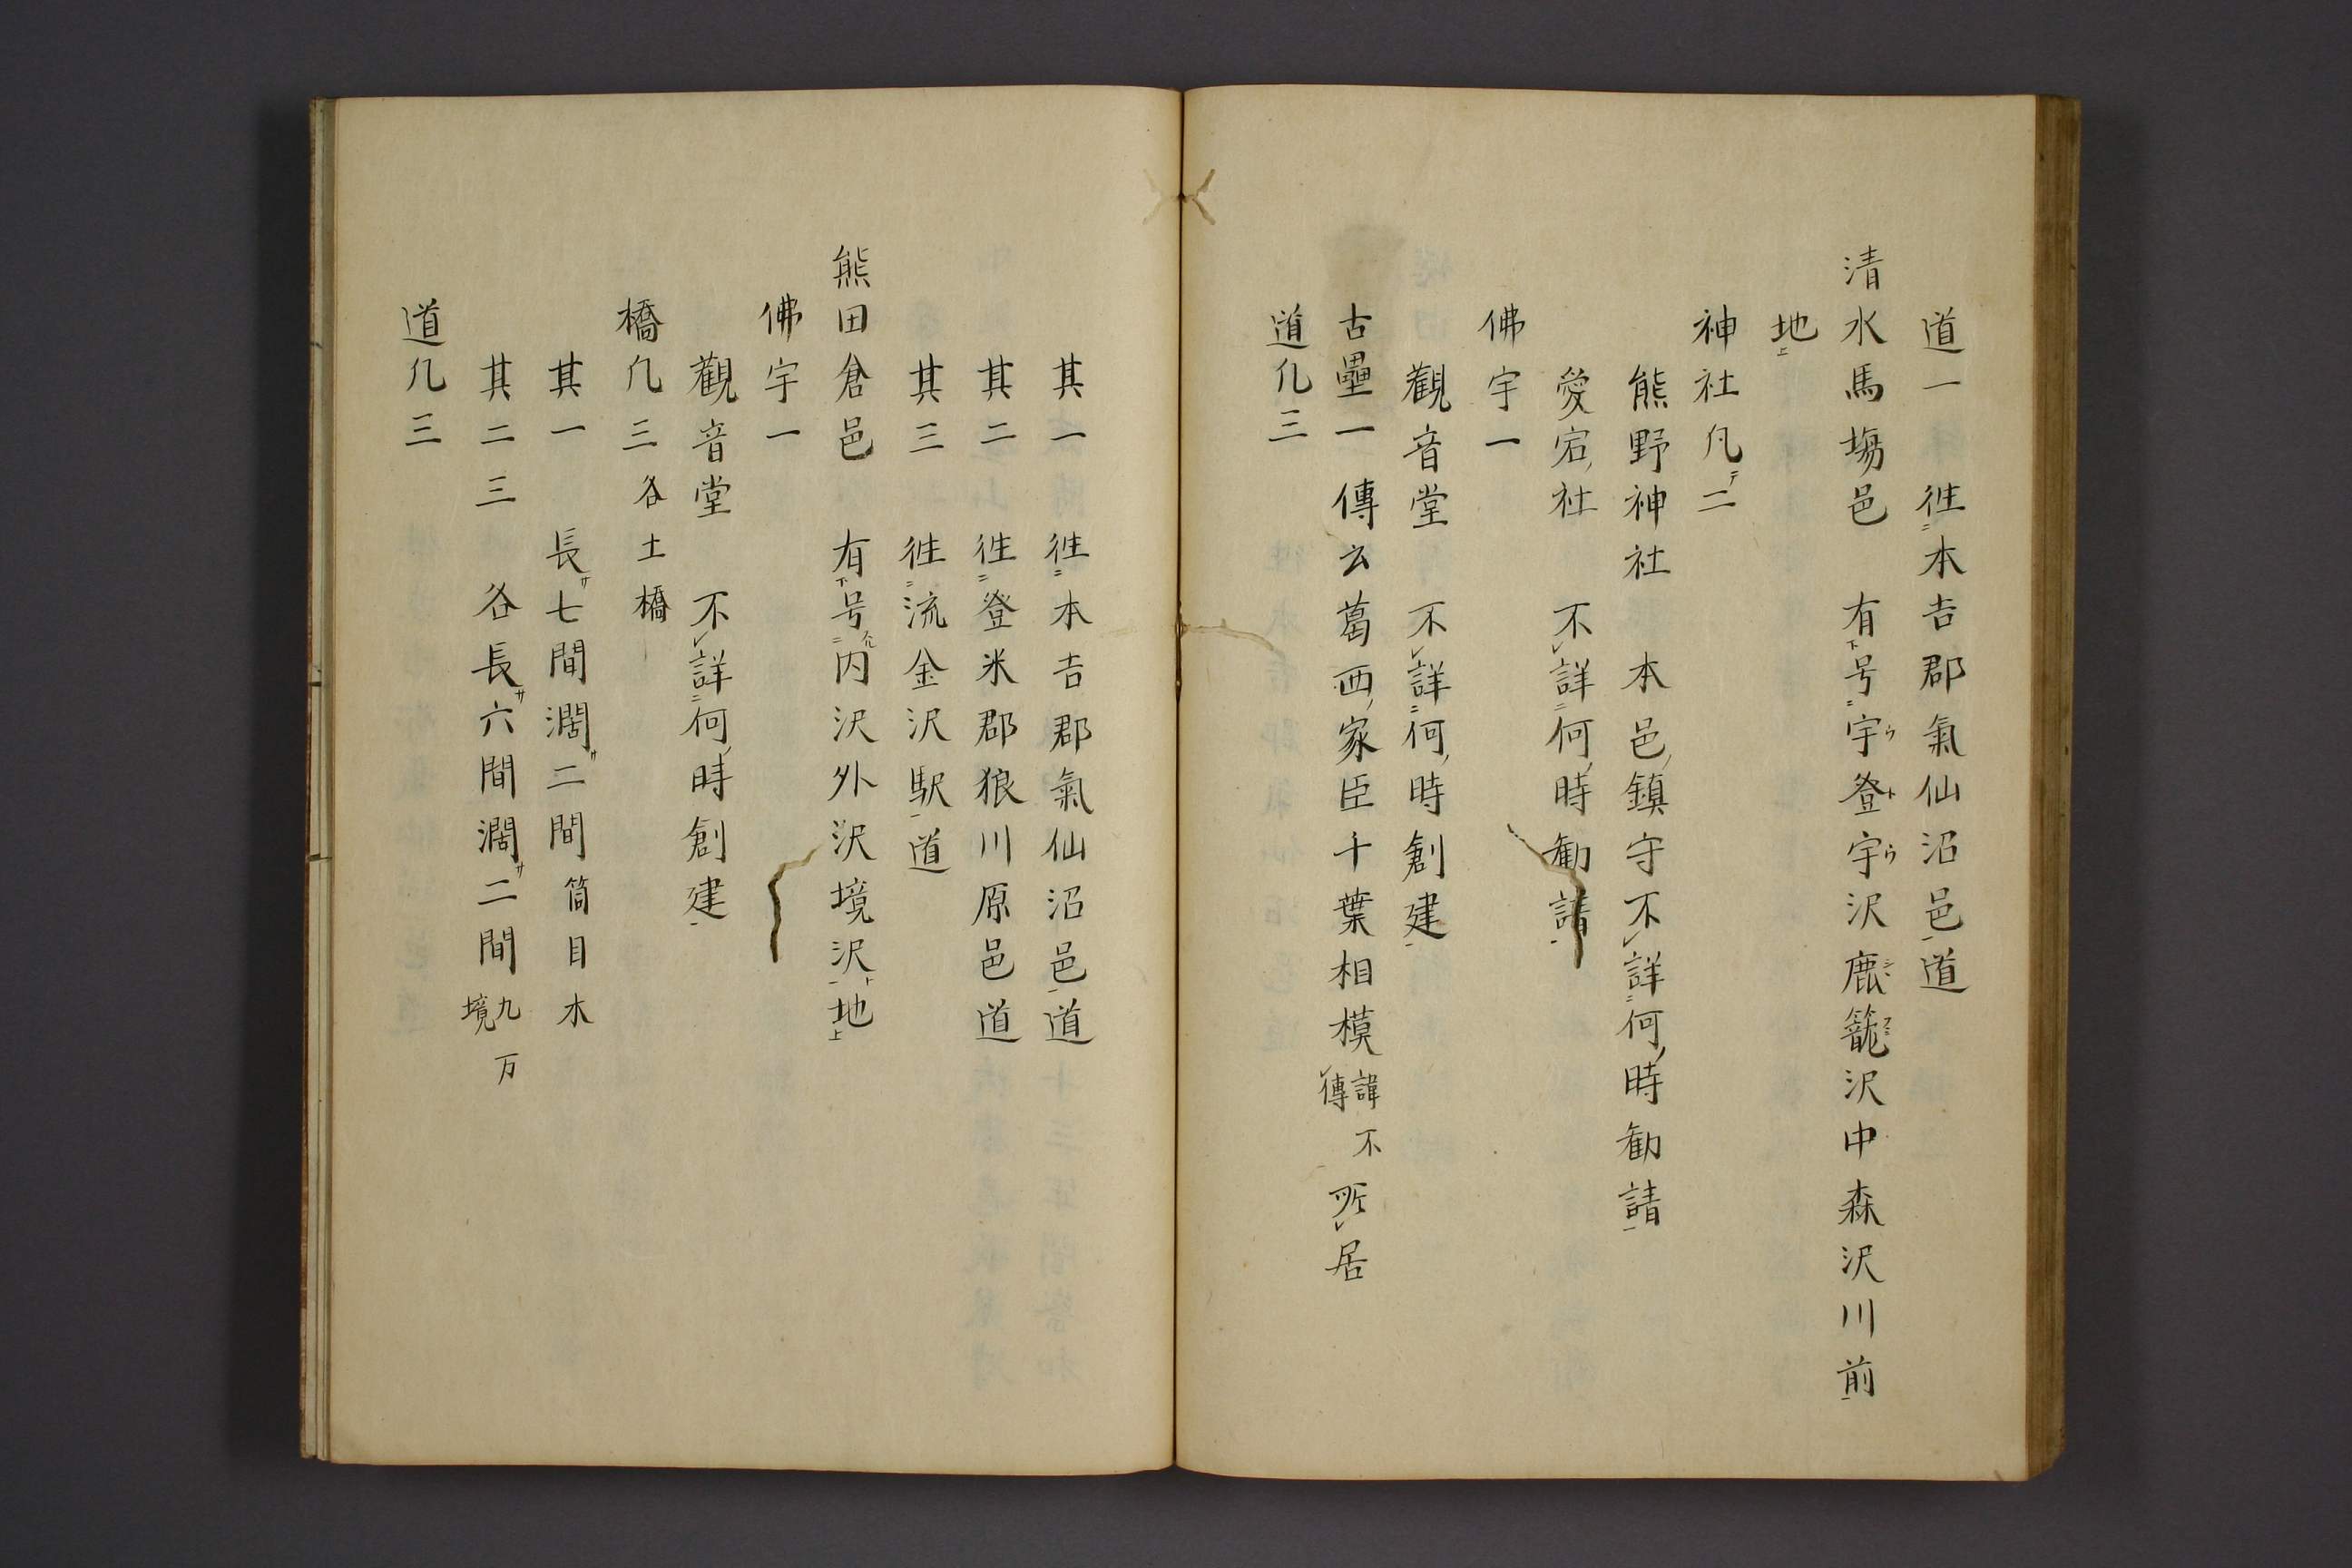 道一　徃本吉郡氣仙沼邑道
清水馬場邑　有号宇登宇沢鹿籠沢中森沢川前
地
神社凡二
熊野神社　本邑鎮守不詳何時勧請
愛宕社　不詳何時勧請
佛宇一
觀音堂　不詳何時創建
古壘一　傳云葛西家臣千葉相模諱不傳所居
道凡三
其一　徃本吉郡氣仙沼邑道
其二　徃登米郡狼川原邑道
其三　徃流金沢駅道
熊田倉邑　有号内沢外沢境沢地
佛宇一
觀音堂　不詳何時創建
橋凡三各土橋
其一　長七間濶二間筒目木
其二三　各長六間濶二間九万境
道凡三